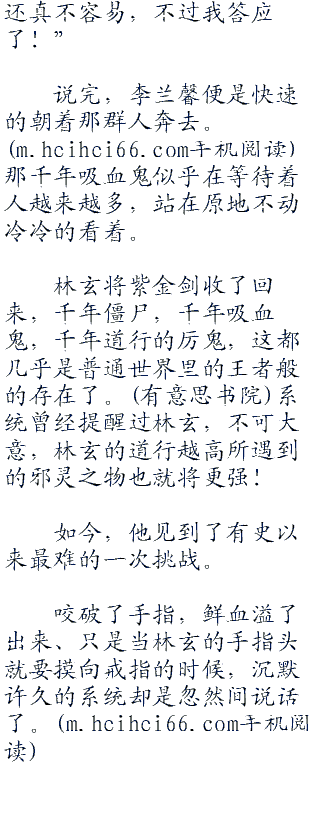 还真不容易，不过我答应
了！”
说完，李兰馨便是快速
的朝着那群人奔去。
(m.hcihci66.com手机阅读)
那千年吸血鬼似乎在等待着
人越来越多，站在原地不动
冷冷的看着。
林玄将紫金剑收了回
来，千年僵尸，千年吸血
鬼，千年道行的厉鬼，这都
几乎是普通世界里的王者般
的存在了。(有意思书院)系
统曾经提醒过林玄，不可大
意，林玄的道行越高所遇到
的邪灵之物也就将更强！
如今，他见到了有史以
来最难的一次挑战。
咬破了手指，鲜血溢了
出来、只是当林玄的手指头
就要摸向戒指的时候，沉默
许久的系统却是忽然间说话
了。(m.hcihci66.com手机阅
读)